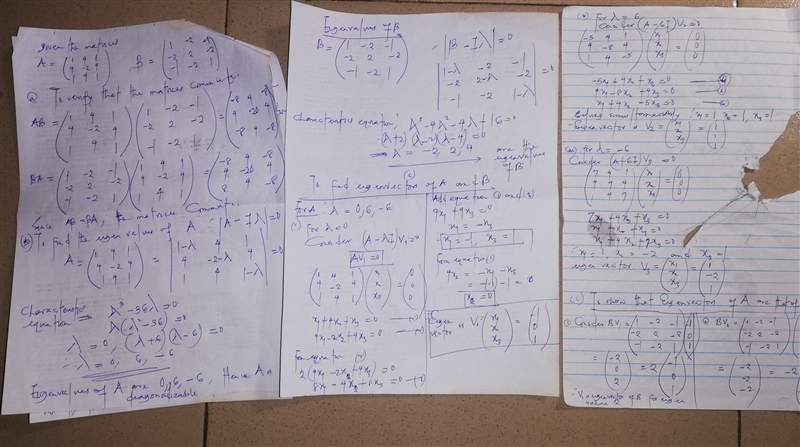 Given the matrices
A = (1 4 1
4 -2 4
1 4 1)
B = (1 -2 -1
-2 2 -2
-1 -2 1)
(a) To verify that the matrices commute
AB = (1 4 1
4 -2 4
1 4 1) (1 -2 -1
-2 2 -2
-1 -2 1) = (-8 4 -8
4 -20 4
-8 4 -8)
BA = (1 -2 -1
-2 2 -2
-1 -2 1) (1 4 1
4 -2 4
1 4 1) = (-8 4 -8
4 -20 4
-8 4 -8)
Since AB = BA, the matrices commute.
(b) To find the eigenvalues of A |A - Iλ| = 0
A = (1 4 1
4 -2 4
1 4 1) = |1-λ 4 1
4 -2-λ 4
1 4 1-λ| = 0
Characteristic equation
λ³ - 36λ = 0
λ(λ² - 36) = 0
λ = 0, (λ+6)(λ-6) = 0
λ = 0, 6, -6
Eigenvalues of A are 0, 6, -6, Hence A is
diagonalizable
Eigenvalues of B
B = (1 -2 -1
-2 2 -2
-1 -2 1)
|B - Iλ| = 0
|1-λ -2 -1
-2 2-λ -2
-1 -2 1-λ| = 0
Characteristic equation λ³ - 4λ² - 4λ + 16 = 0
(λ+2)(λ-2)(λ-4) = 0
λ = -2, 2, 4 are the
eigenvalues
of B
(c)
To find eigenvector of A and B
For A: λ = 0, 6, -6
(i) For λ = 0
Consider (A - λI)V₁ = 0
AV₁ = 0
(1 4 1
4 -2 4
1 4 1) (x₁
x₂
x₃) = (0
0
0)
x₁ + 4x₂ + x₃ = 0
4x₁ - 2x₂ + 4x₃ = 0
From equation
2(4x₁ - 2x₂ + 4x₃) = 0
Add equation
9x₁ + 9x₃ = 0
x₁ = -x₃
x₁ = -1, x₃ = 1
From equation (1)
4x₂ = -x₁ - x₃
= -(-1) - 1 = 0
x₂ = 0
Eigen
vector is V₁ = (x₁
x₂
x₃) = (-1
0
1)
For λ = 6,
Consider (A - 6I)V₂ = 0
(-5 4 1
4 -8 4
1 4 -5) (x₁
x₂
x₃) = (0
0
0)
-5x₁ + 4x₂ + x₃ = 0
4x₁ - 8x₂ + 4x₃ = 0
x₁ + 4x₂ - 5x₃ = 0
Solving simultaneously x₁ = 1, x₂ = 1, x₃ = 1
Eigenvector is V₂ = (x₁
x₂
x₃) = (1
1
1)
For λ = -6
Consider (A + 6I)V₃ = 0
(7 4 1
4 4 4
1 4 7) (x₁
x₂
x₃) = (0
0
7x₁ + 4x₂ + x₃ = 0
x₁ + 4x₂ + 7x₃ = 0
x₁ = 1, x₂ = -2 and x₃ = 1
eigen vector V₃ = (x₁
x₂
x₃) = (1
-2
1)
To show that Eigenvector of A are that of
Consider BV₁ = (1 -2 -1
-2 2 -2
-1 -2 1)
BV₂ =
= (-2
0
2) = 2(-1
0
1)
= (-2
-2
-2) = -2
V₁ is eigenvector of B for eigen
value 2